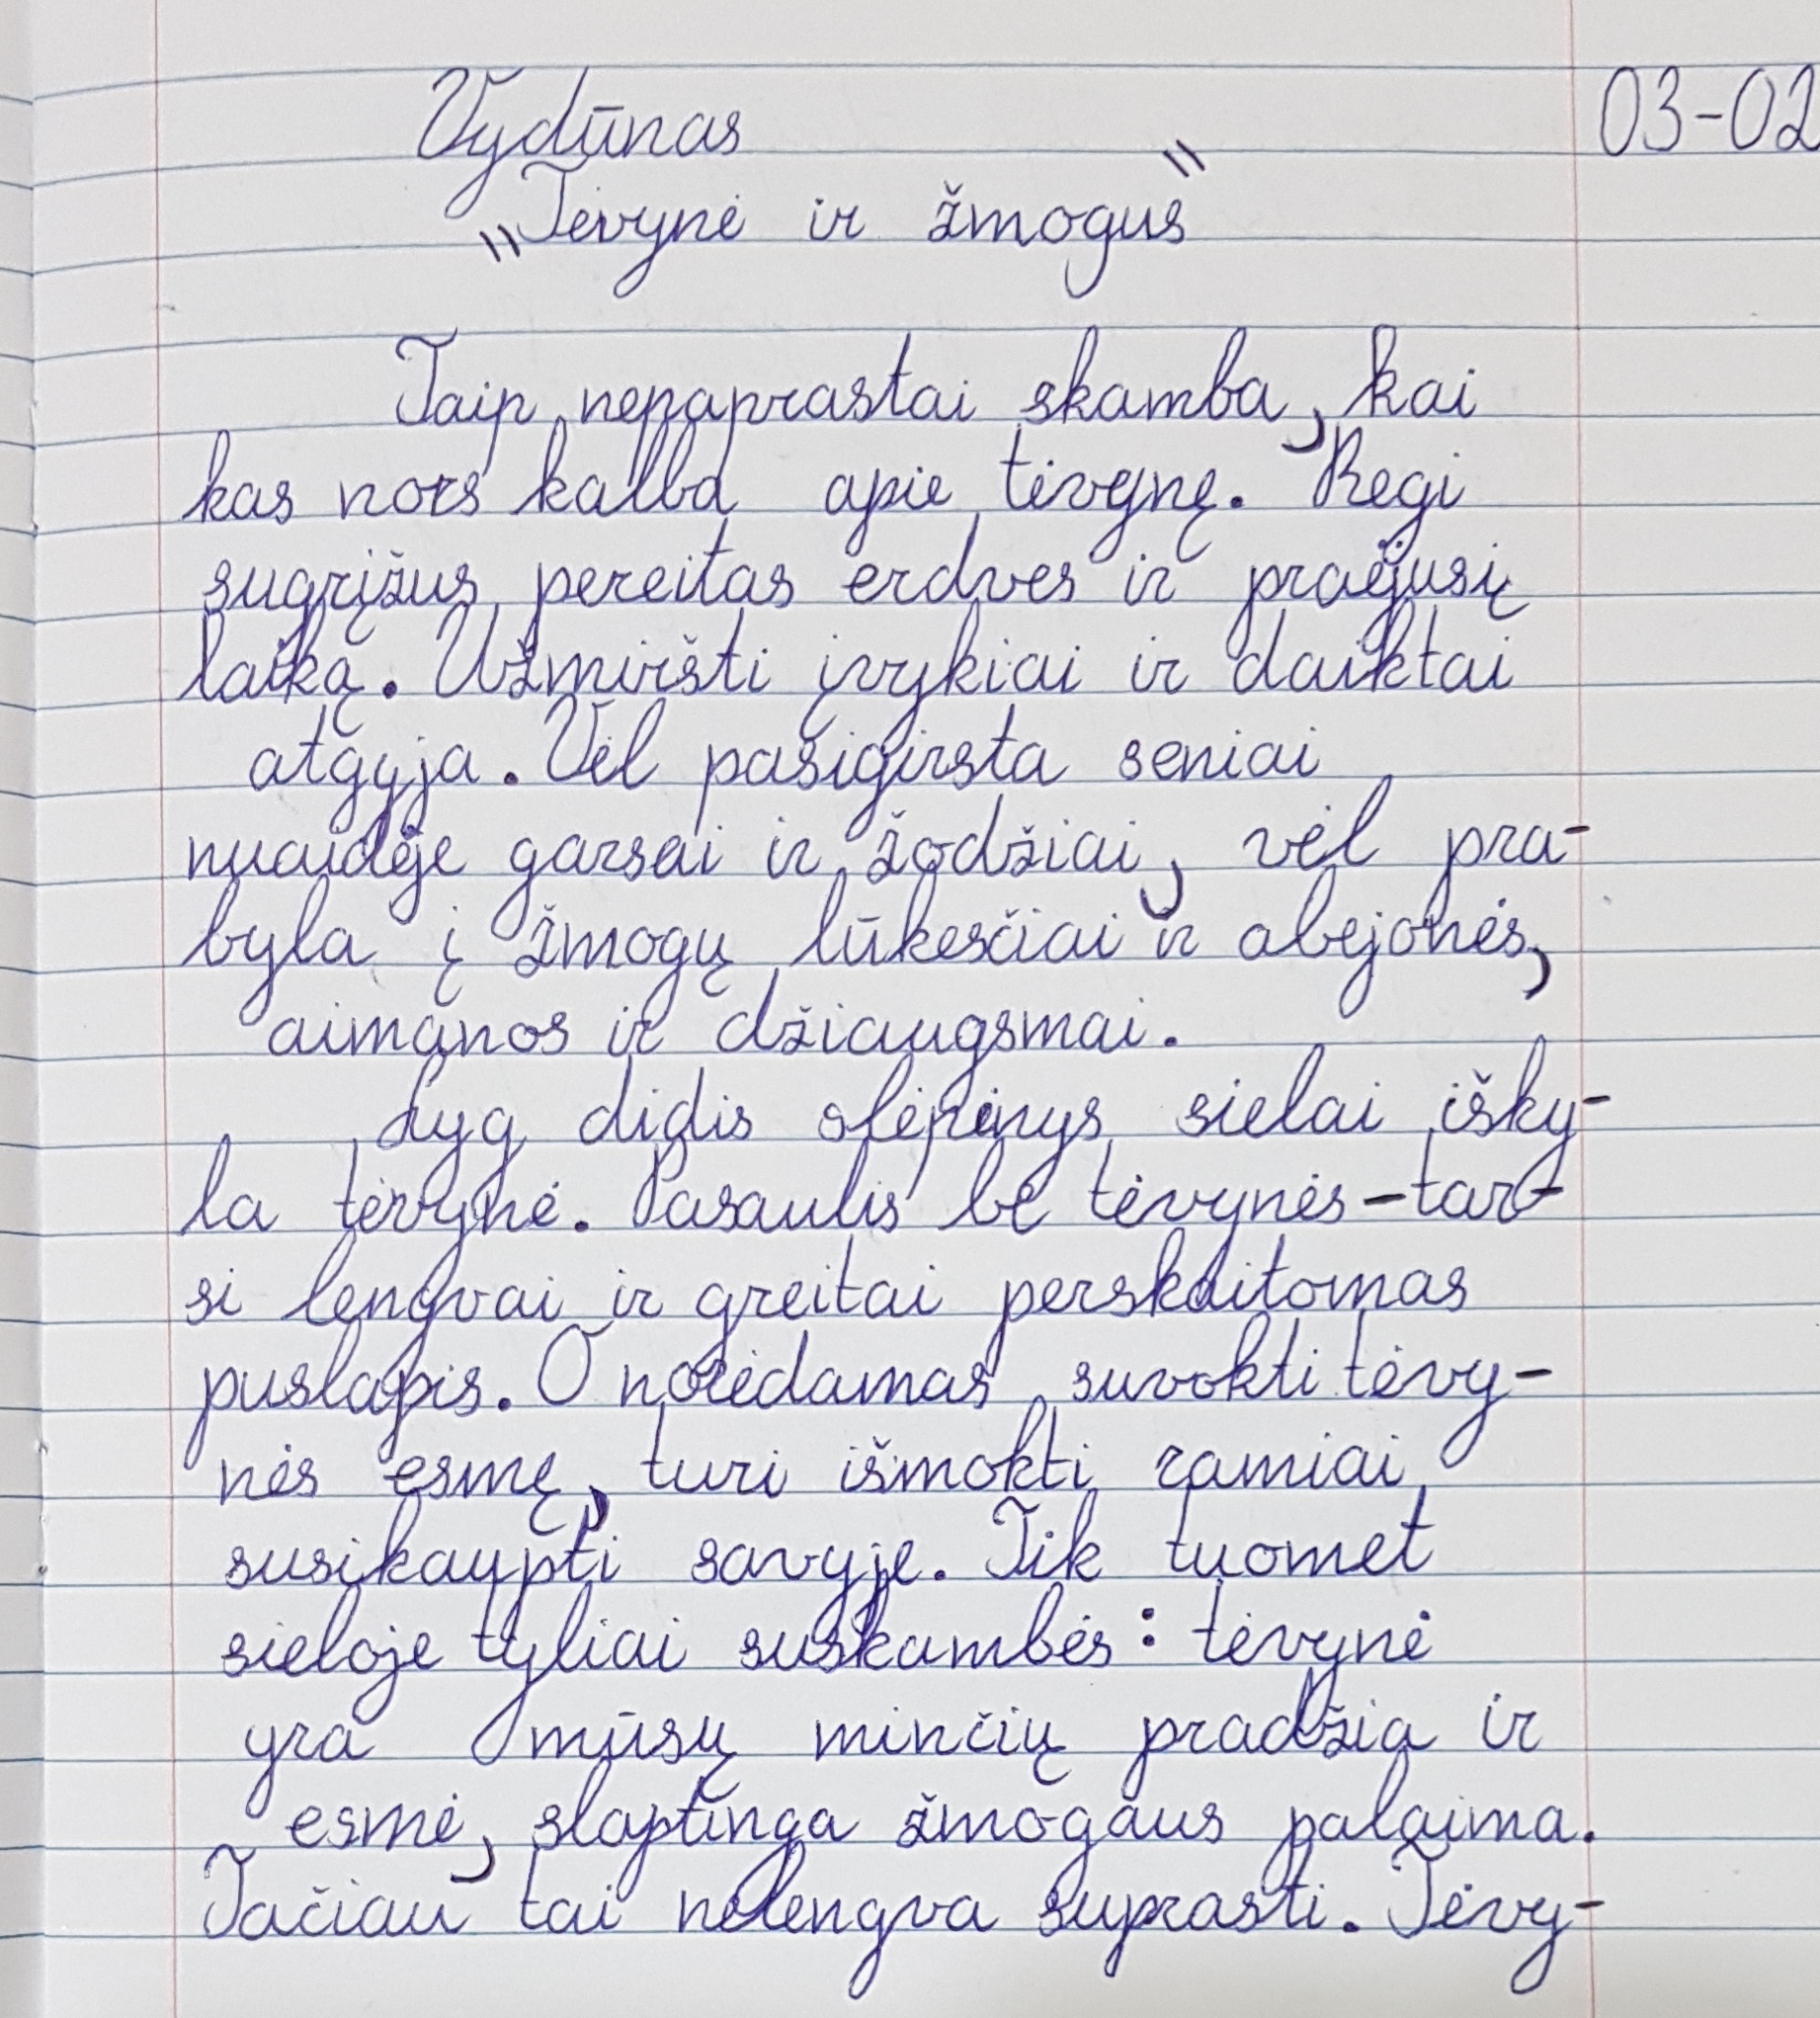 Vydūnas 03-02
„Tėvynė ir žmogus"
Taip nepaprastai skamba, kai
kas nors kalba apie tėvynę. Regi
sugrįžus pereitas erdves ir praėjusį
laiką. Užmiršti įvykiai ir daiktai
atgyja. Vėl pasigirsta seniai
nuaidėję garsai ir žodžiai, vėl pra-
byla į žmogų lūkesčiai ir abejonės,
aimanos ir džiaugsmai.
Lyg didis slėpinys sielai išky-
la tėvynė. Pasaulis be tėvynės – tar-
si lengvai ir greitai perskaitomas
puslapis. O norėdamas suvokti tėvy-
nės esmę, turi išmokti ramiai
susikaupti savyje. Tik tuomet
sieloje tyliai suskambės: tėvynė
yra mūsų minčių pradžia ir
esmė, slaptinga žmogaus palaima.
Tačiau tai nelengva suprasti. Tėvy-